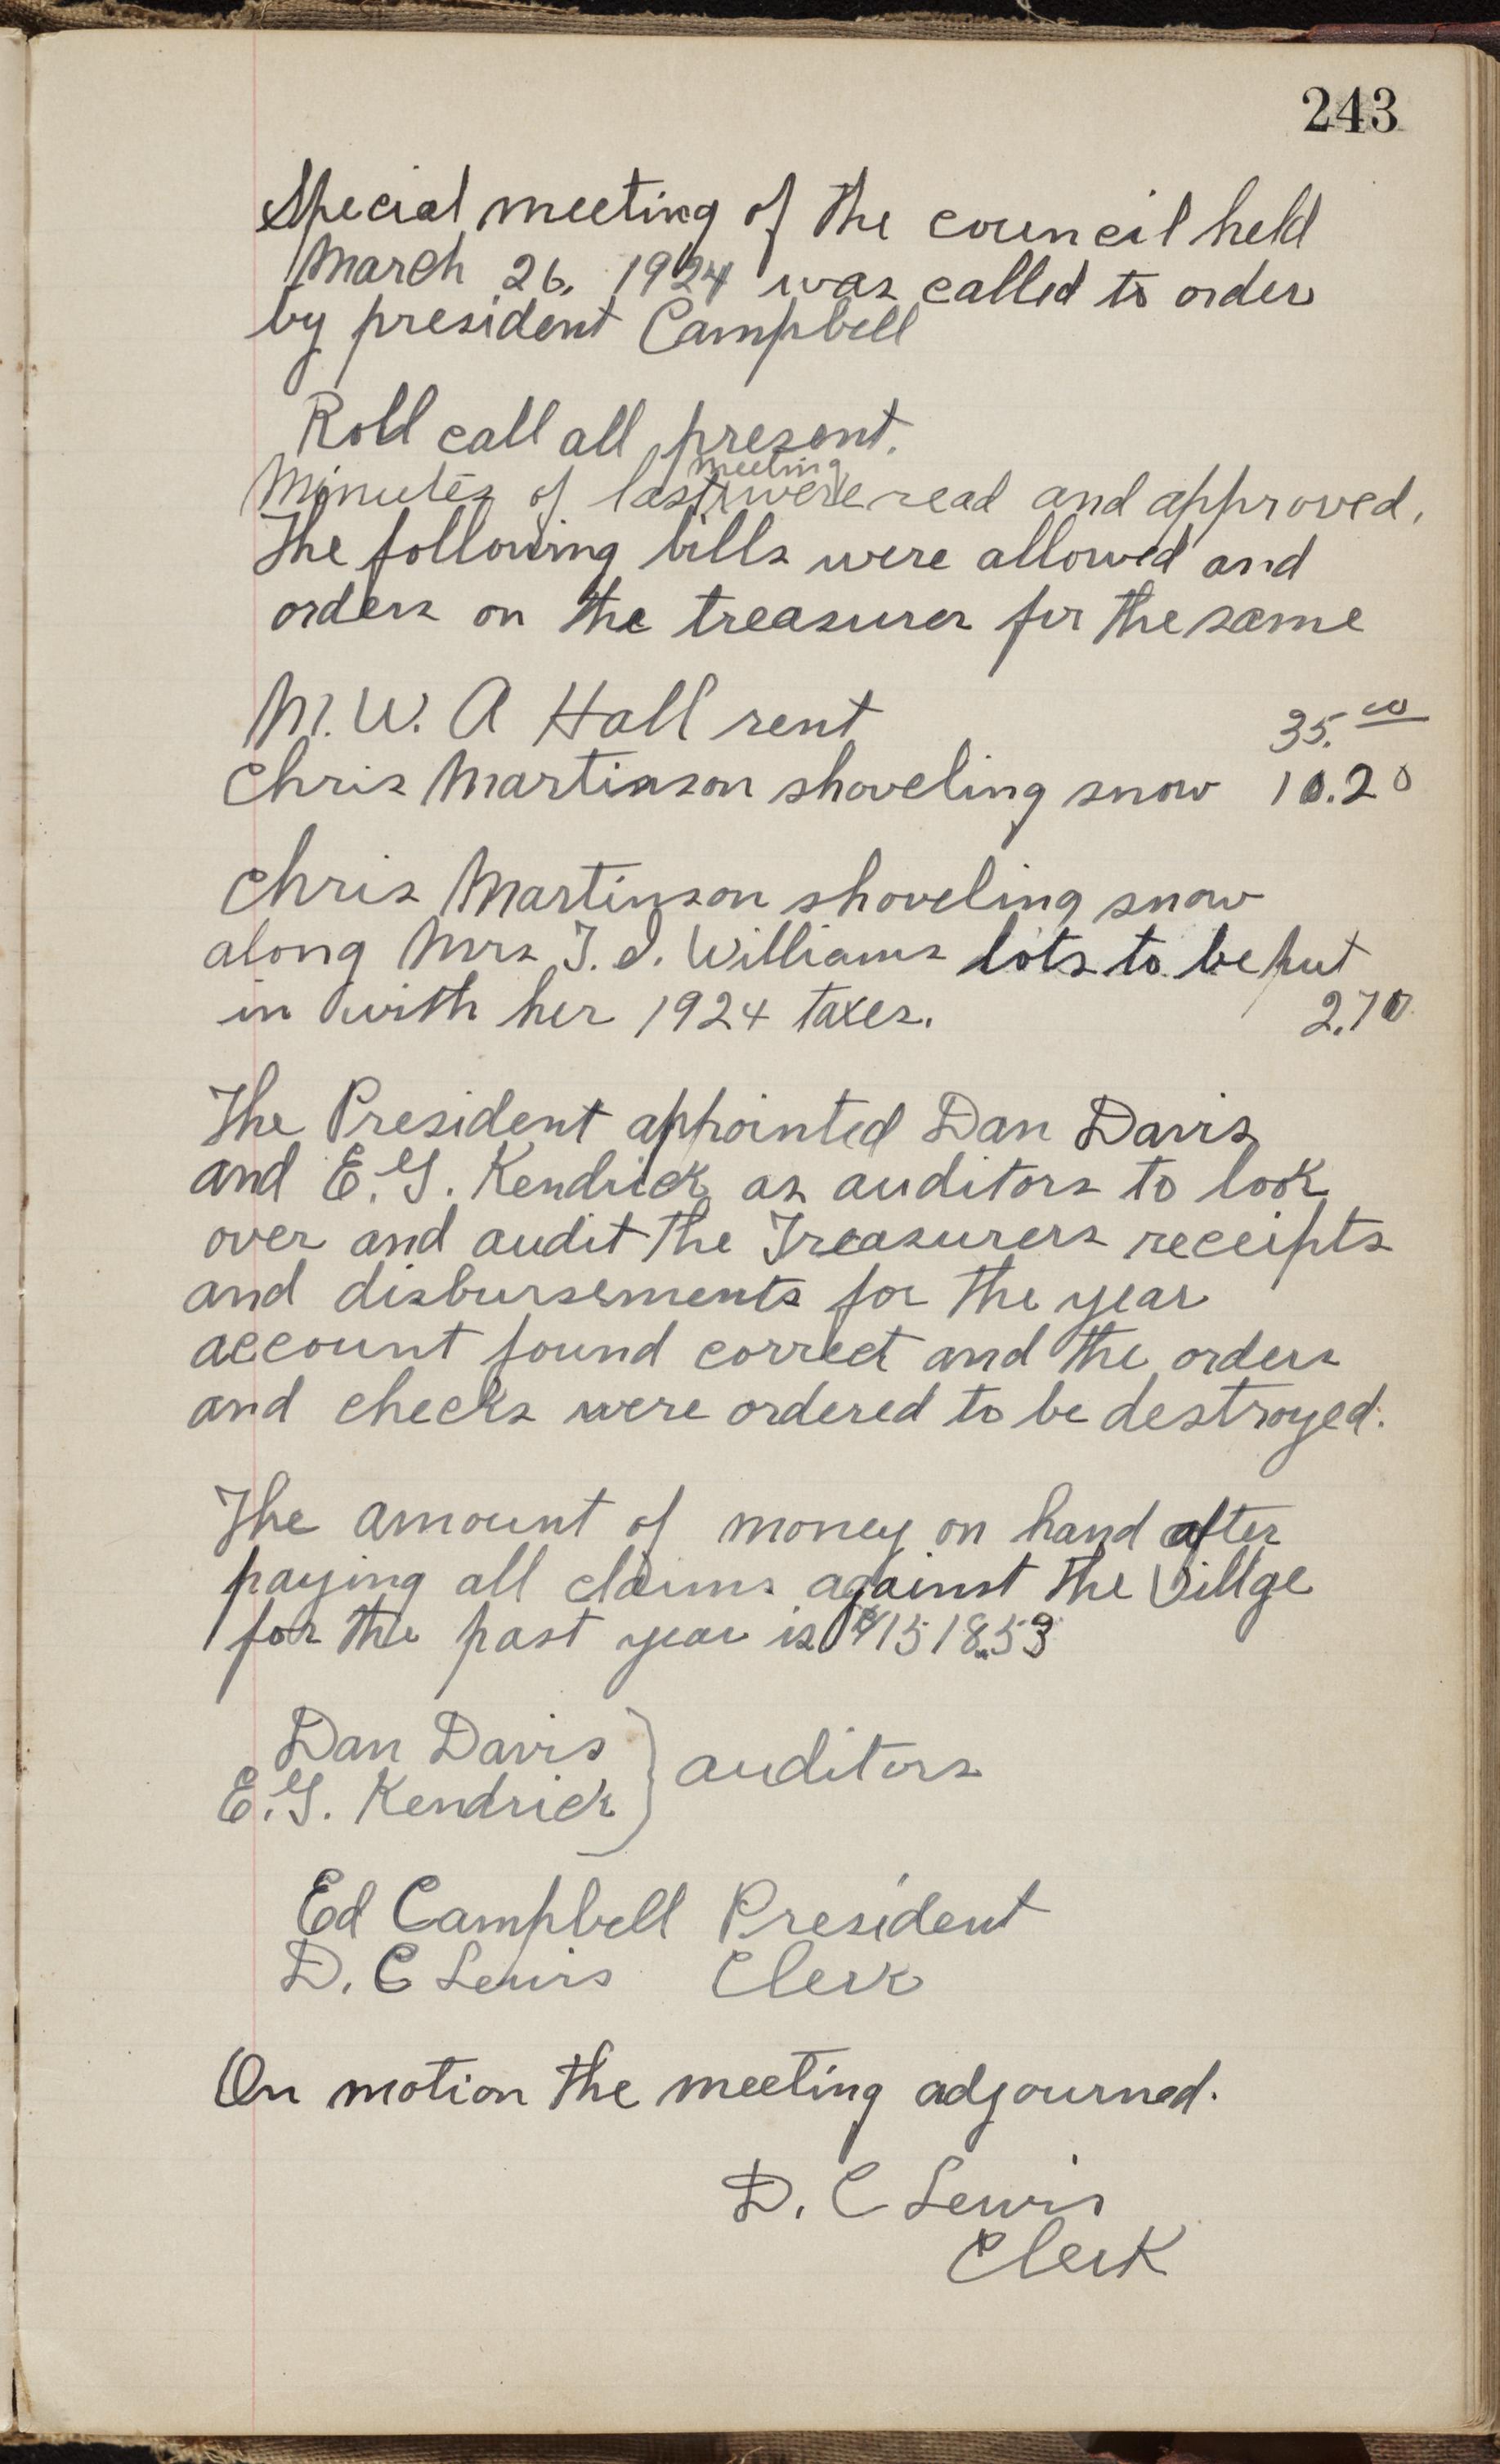 243
Special meeting of the council held
March 26, 1924 was called to order
by president Campbell
Roll call all present.
meeting
Minutes of last were read and approved.
The following bills were allowed and
orders on the treasurer for the same
M.W.A Hall rent 35.00
Chris Martinson shoveling snow 10.20
Chris Martinson shoveling snow
along Mrs T. I. Williams lots to be put
in with her 1924 taxes. 2.70
The President appointed Dan Davis
and E.G. Kendrick as auditors to look
over and audit the Treasurers receipts
and disbursements for the year
account found correct and the orders
and checks were ordered to be destroyed.
The amount of money on hand after
paying all claims against the Villge
for the past year is $1518.53
Dan Davis
E.G. Kendrick } auditors
Ed Campbell President
D. C Lewis Clerk
On motion the meeting adjourned.
D. C Lewis
Clerk